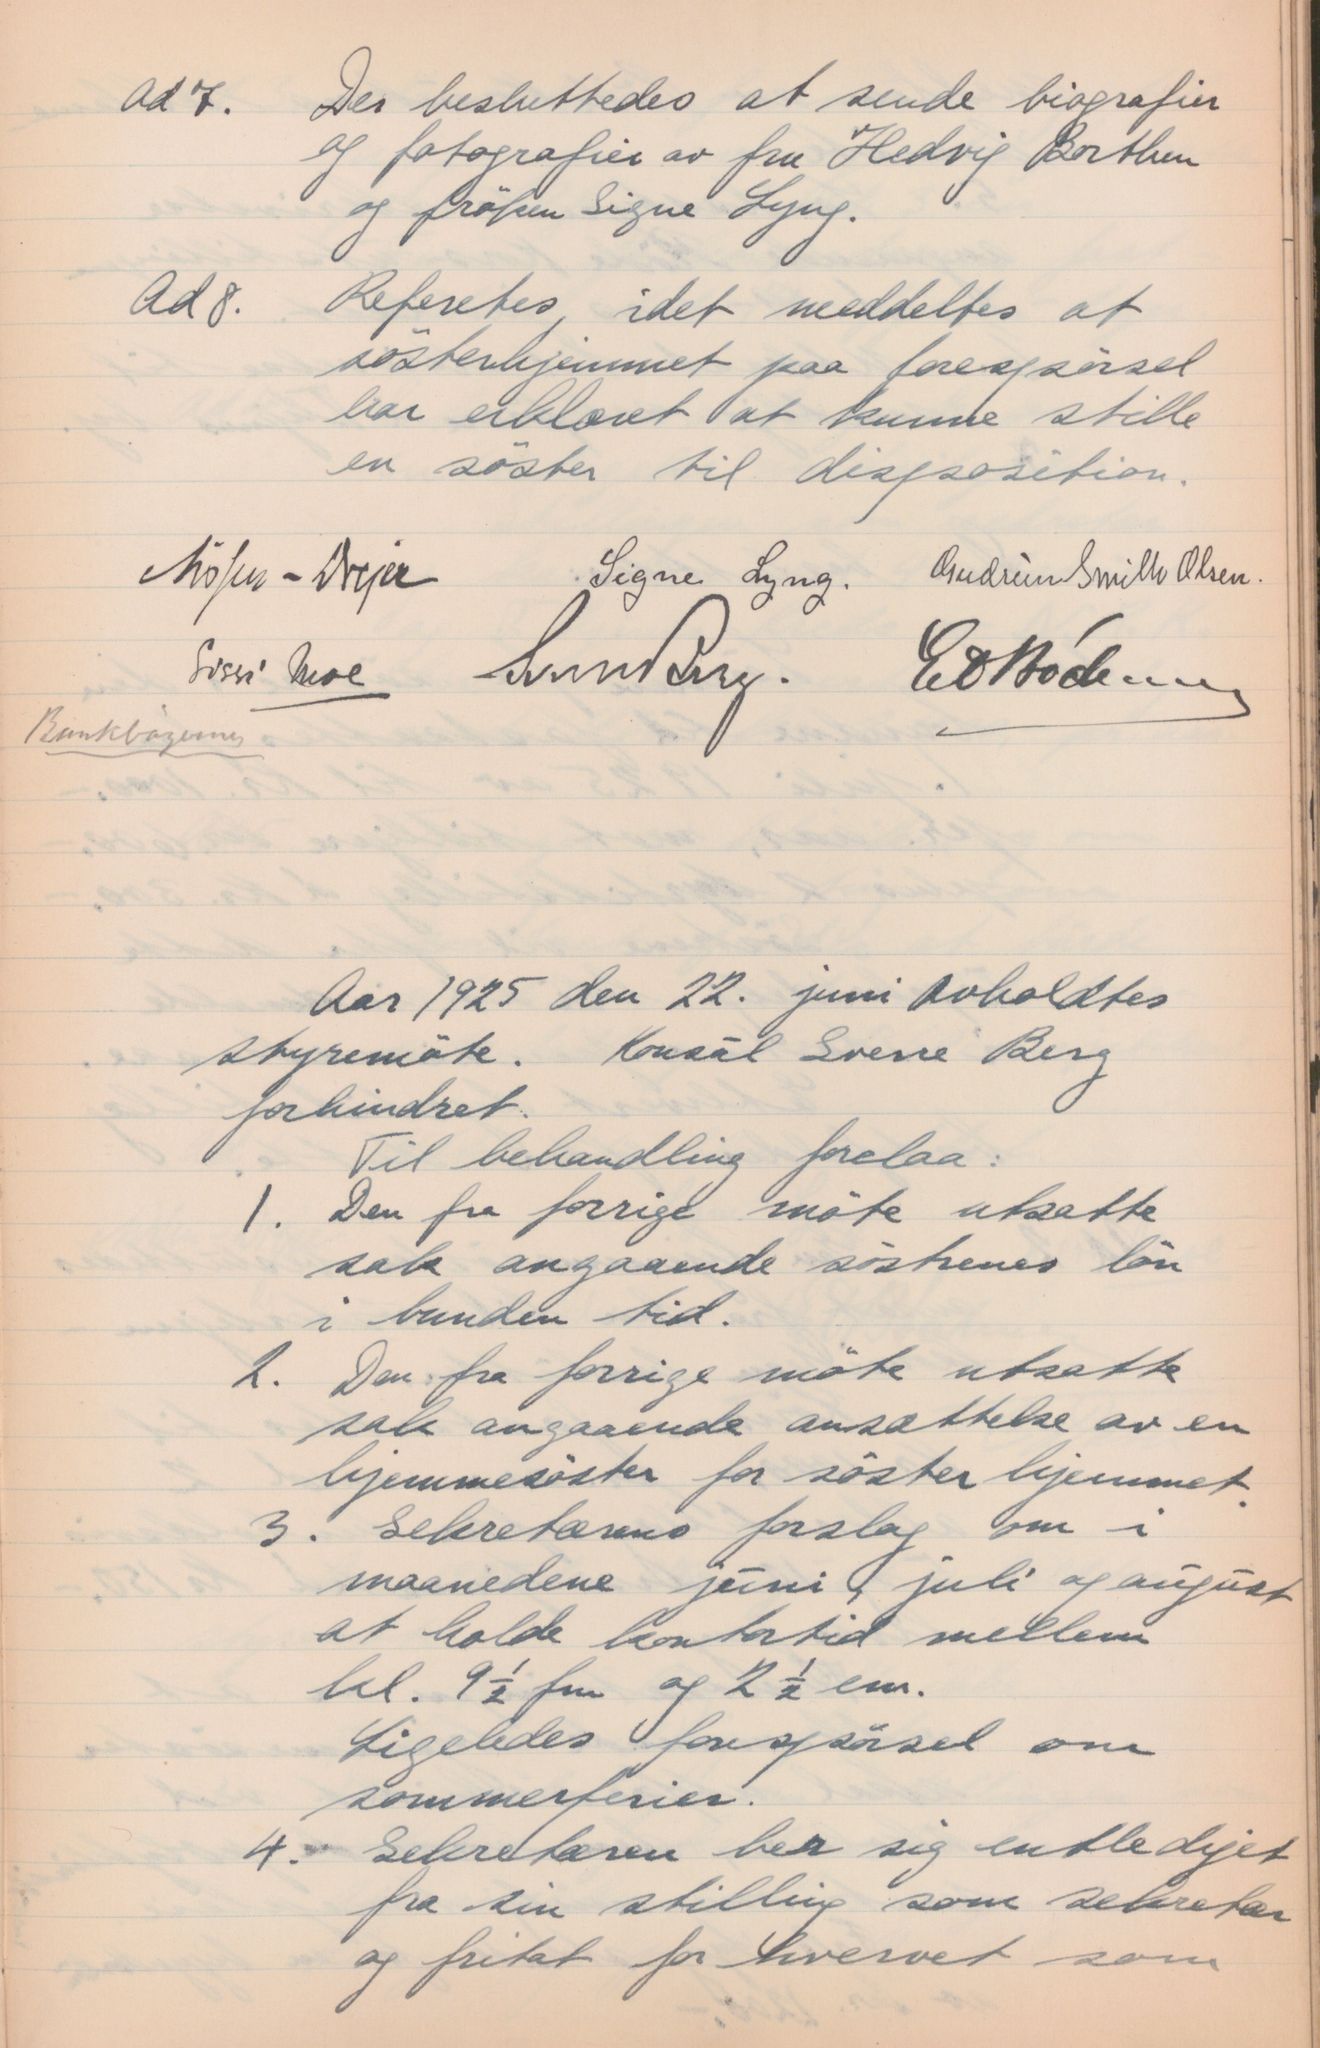 Ad 7. Der besluttedes at sende biografier
og fotografier av fru Hedvig Borthen
og fröken Signe Lyng.
Ad 8. Referetes, idet meddeltes at
sösterhjemmet paa forespörsel
har erklæret at kunne stille
en söster til disposition.
Dreyer Signe Lyng. Gudrun Smith Olsen.
Sissi Moe Sverre Berg.
Bankbögerne
Aar 1925 den 22. juni avholdtes
styremöte. Konsul Sverre Berg
forhindret.
Til behandling forelaa:
1. Den fra forrige möte utsatte
sak angaaende söstrenes lön
i bunden tid.
2. Den fra forrige möte utsatte
sak angaaende ansættelse av en
hjemmesöster for sösterhjemmet.
3. Sekretærens forslag om i
maanedene juni, juli og august
at holde kontortid mellem
kl. 9 1/2 fm og 2 1/2 em.
Ligeledes forespörsel om
sommerferier.
4. Sekretæren ber sig entlediget
fra sin stilling som sekretær
og fritat for hvervet som